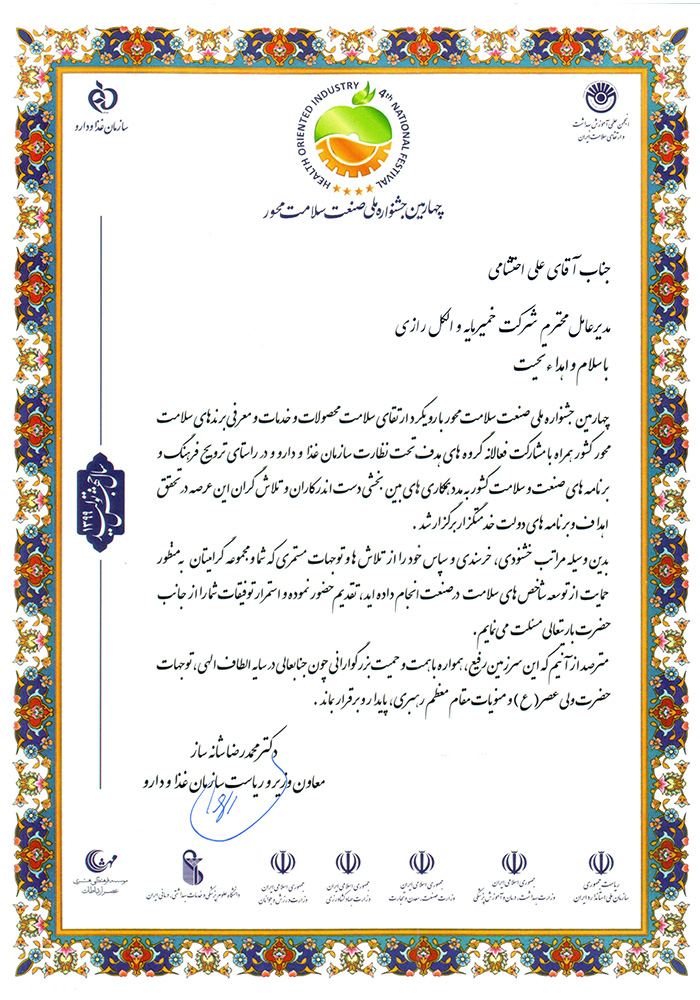 سازمان غذا و دارو
HEALTH ORIENTED INDUSTRY
4th NATIONAL FESTIVAL
انجمن علمی آموزش بهداشت
و ارتقای سلامت ایران
چهارمین جشنواره ملی صنعت سلامت محور
جناب آقای علی احتشامی
مدیرعامل محترم شرکت خمیرمایه و الکل رازی
با سلام و اهداء تحیت
چهارمین جشنواره ملی صنعت سلامت محور با رویکرد ارتقای سلامت محصولات و خدمات و معرفی برندهای سلامت
محور کشور همراه با مشارکت فعالانه گروه های هدف تحت نظارت سازمان غذا و دارو و در راستای ترویج فرهنگ و
برنامه های صنعت و سلامت کشور به مدد همکاری های بین بخشی دست اندرکاران و تلاش گران این عرصه در تحقق
اهداف و برنامه های دولت خدمتگزار برگزار شد .
بدین وسیله مراتب خشنودی، خرسندی و سپاس خود را از تلاش ها و توجهات مستمری که شما و مجموعه گرامیتان به منظور
حمایت از توسعه شاخص های سلامت در صنعت انجام داده اید، تقدیم حضور نموده و استمرار توفیقات شما را از جانب
حضرت باریتعالی مسئلت می نمایم.
مترصد از آنیم که این سرزمین رفیع، همواره با همت و حمیت بزرگوارانی چون جنابعالی در سایه الطاف الهی، توجهات
حضرت ولی عصر(ع) و منویات مقام معظم رهبری، پایدار و برقرار بماند .
سال جهش تولید
۱۳۹۹
دکتر محمدرضا شانه ساز
معاون وزیر و ریاست سازمان غذا و دارو
ریاست جمهوری
سازمان ملی استاندارد ایران
جمهوری اسلامی ایران
وزارت بهداشت، درمان و آموزش پزشکی
جمهوری اسلامی ایران
وزارت صنعت، معدن و تجارت
جمهوری اسلامی ایران
وزارت جهاد کشاورزی
جمهوری اسلامی ایران
وزارت ورزش و جوانان
دانشگاه علوم پزشکی و خدمات بهداشتی، درمانی ایران
موسسه فرهنگی هنری
عصر ارتباطات